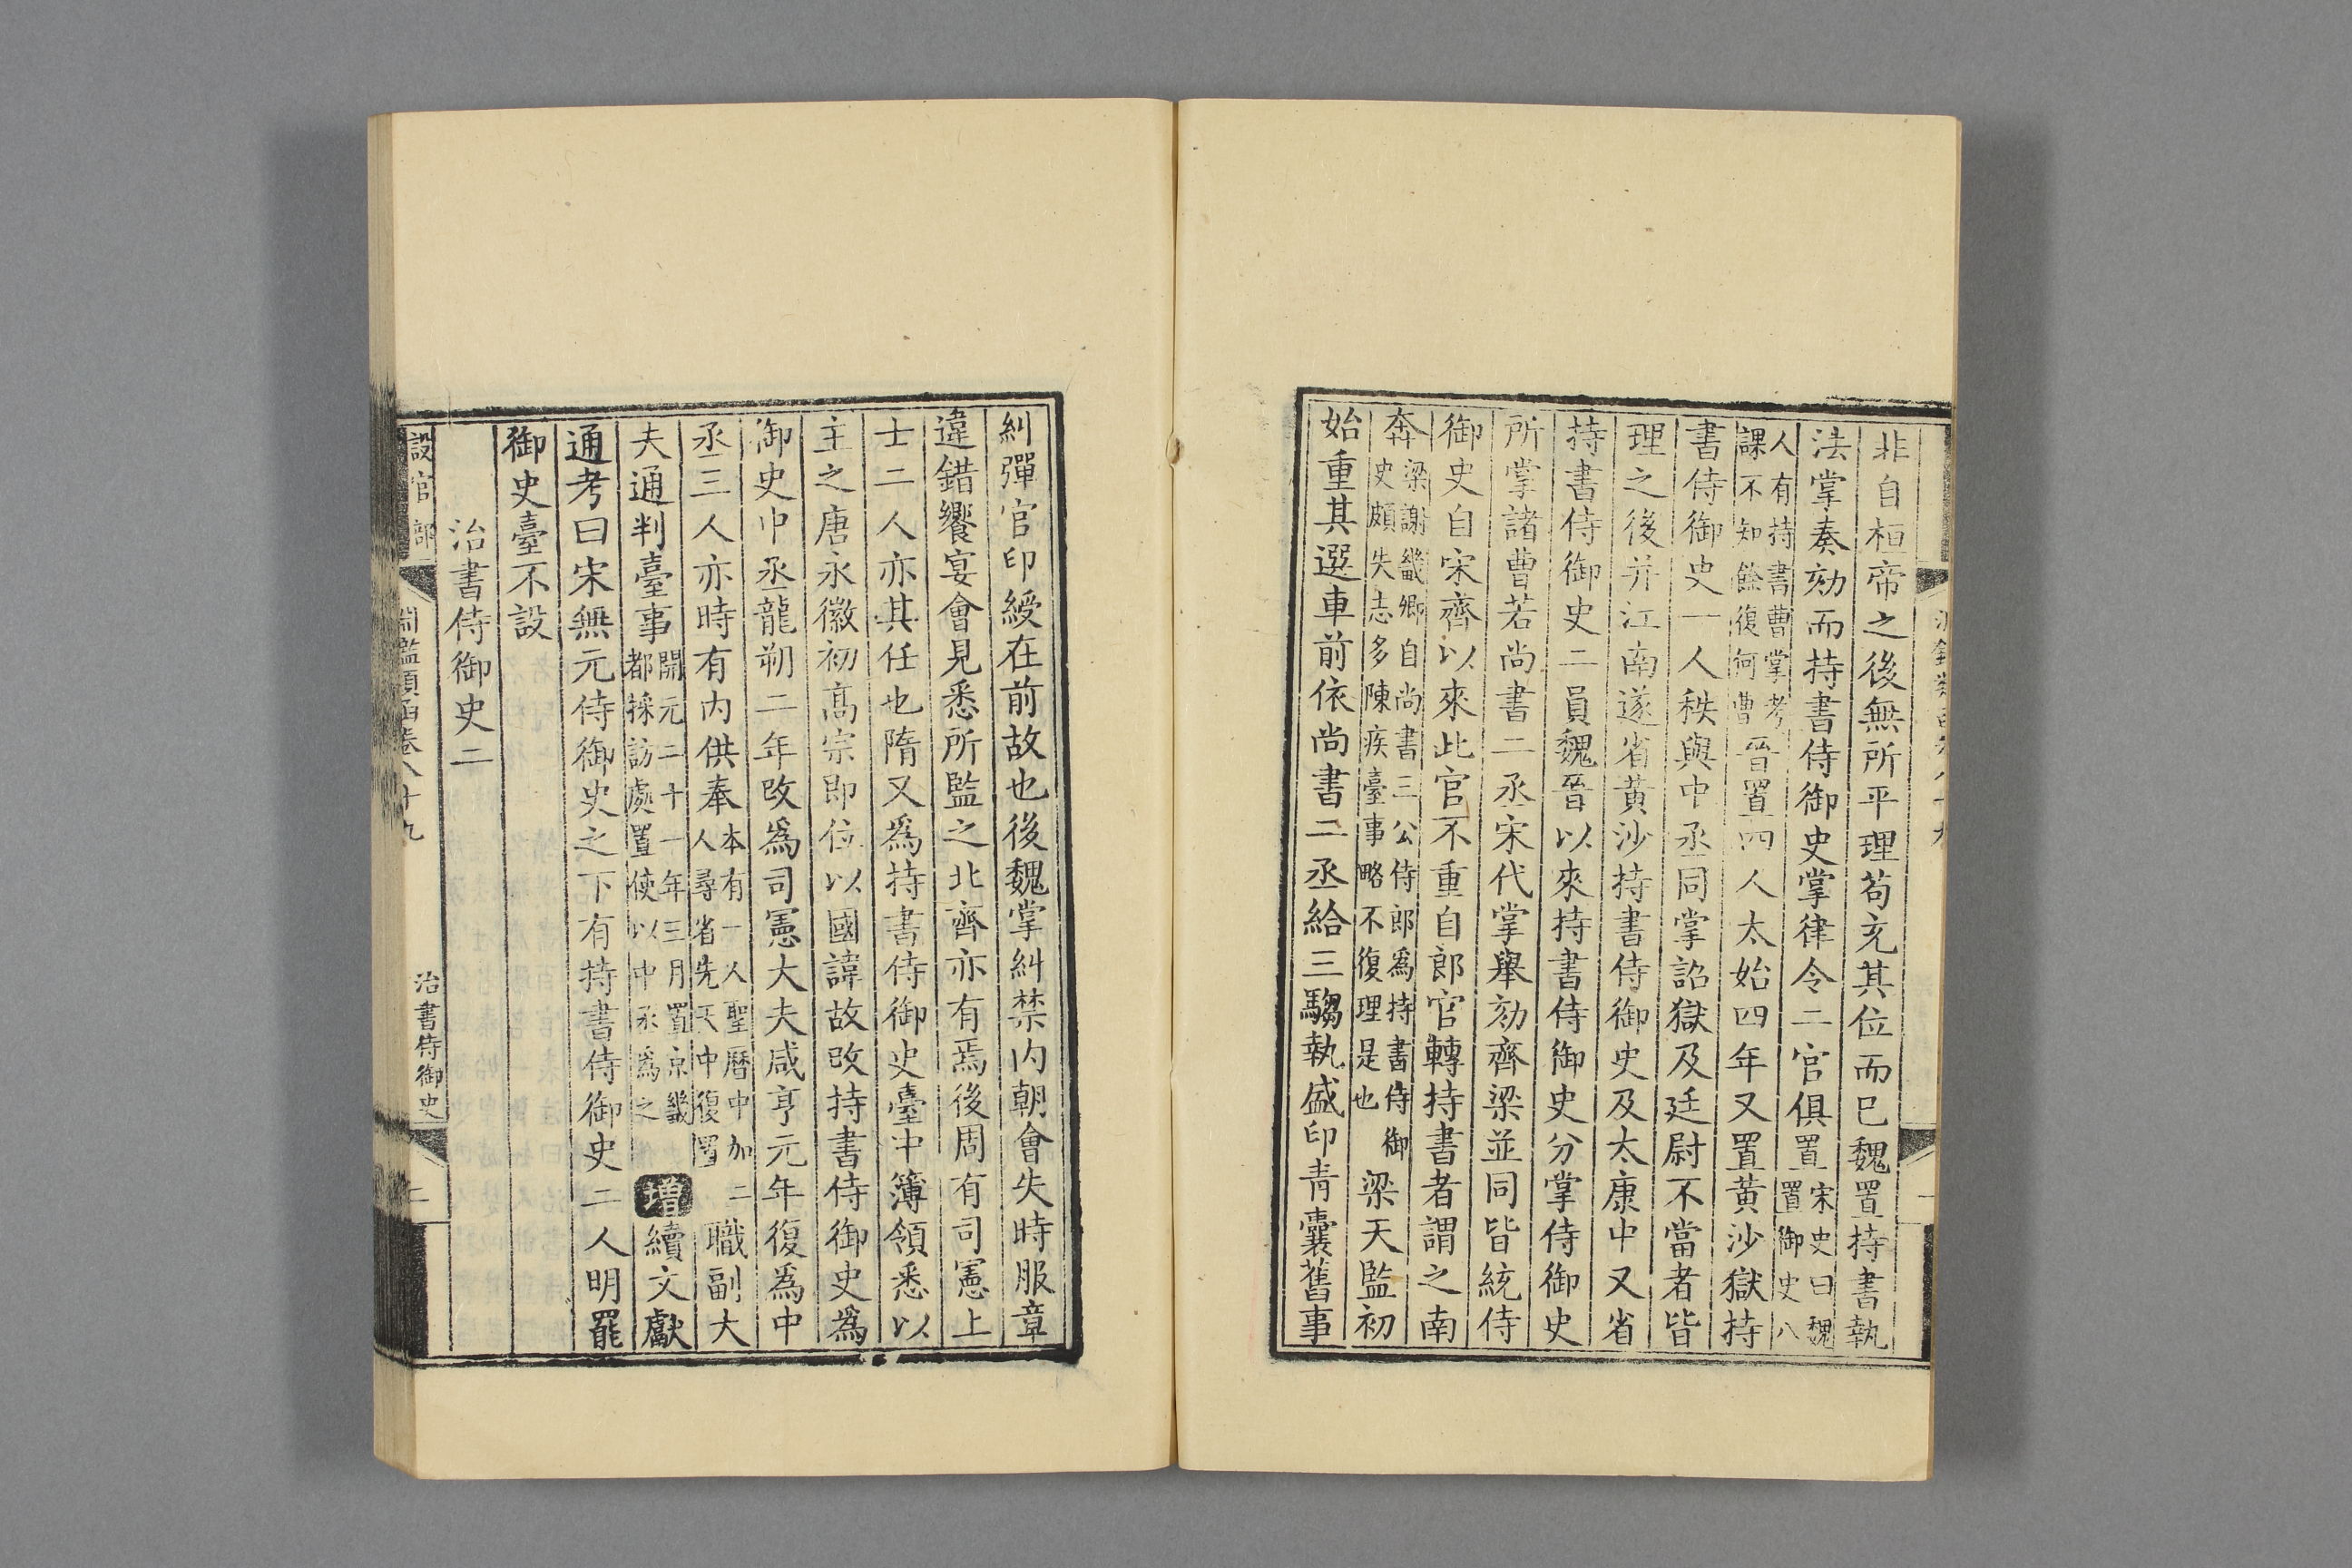 非自桓帝之後無所平理苟充其位而已魏置持書執
法掌奏劾而持書侍御史掌律令二官俱置宋史曰魏置御史八
人有持書曹掌考課不知餘復何曹晉置四人太始四年又置黃沙獄持
書侍御史一人秩與中丞同掌詔獄及廷尉不當者皆
理之後并江南遂省黃沙持書侍御史及太康中又省
持書侍御史二員魏晉以來持書侍御史分掌侍御史
所掌諸曹若尚書二丞宋代掌舉劾齊梁並同皆統侍
御史自宋齊以來此官不重自郎官轉持書者謂之南
奔梁謝幾卿自尚書三公侍郎爲持書侍御史頗失志多陳疾臺事略不復理是也梁天監初
始重其選車前依尚書二丞給三騶執盛印青囊舊事
糾彈官印綬在前故也後魏掌糾禁內朝會失時服章
違錯饗宴會見悉所監之北齊亦有焉後周有司憲上
士二人亦其任也隋又爲持書侍御史臺中簿領悉以
主之唐永徽初高宗即位以國諱故改持書侍御史爲
御史中丞龍朔二年改爲司憲大夫咸亨元年復爲中
丞三人亦時有內供奉本有一人聖曆中加二人尋省先天中復置職副大
夫通判臺事開元二十一年三月置京畿都採訪處置使以中丞爲之增續文獻
通考曰宋無元侍御史之下有持書侍御史二人明罷
御史臺不設
治書侍御史二
設官部 淵鑑類函卷八十九 治書侍御史 二